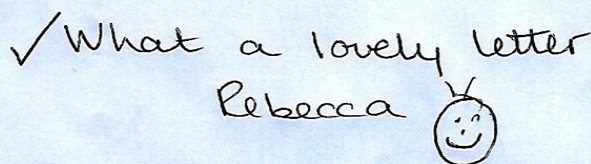 ✓What a lovely letter
Rebecca